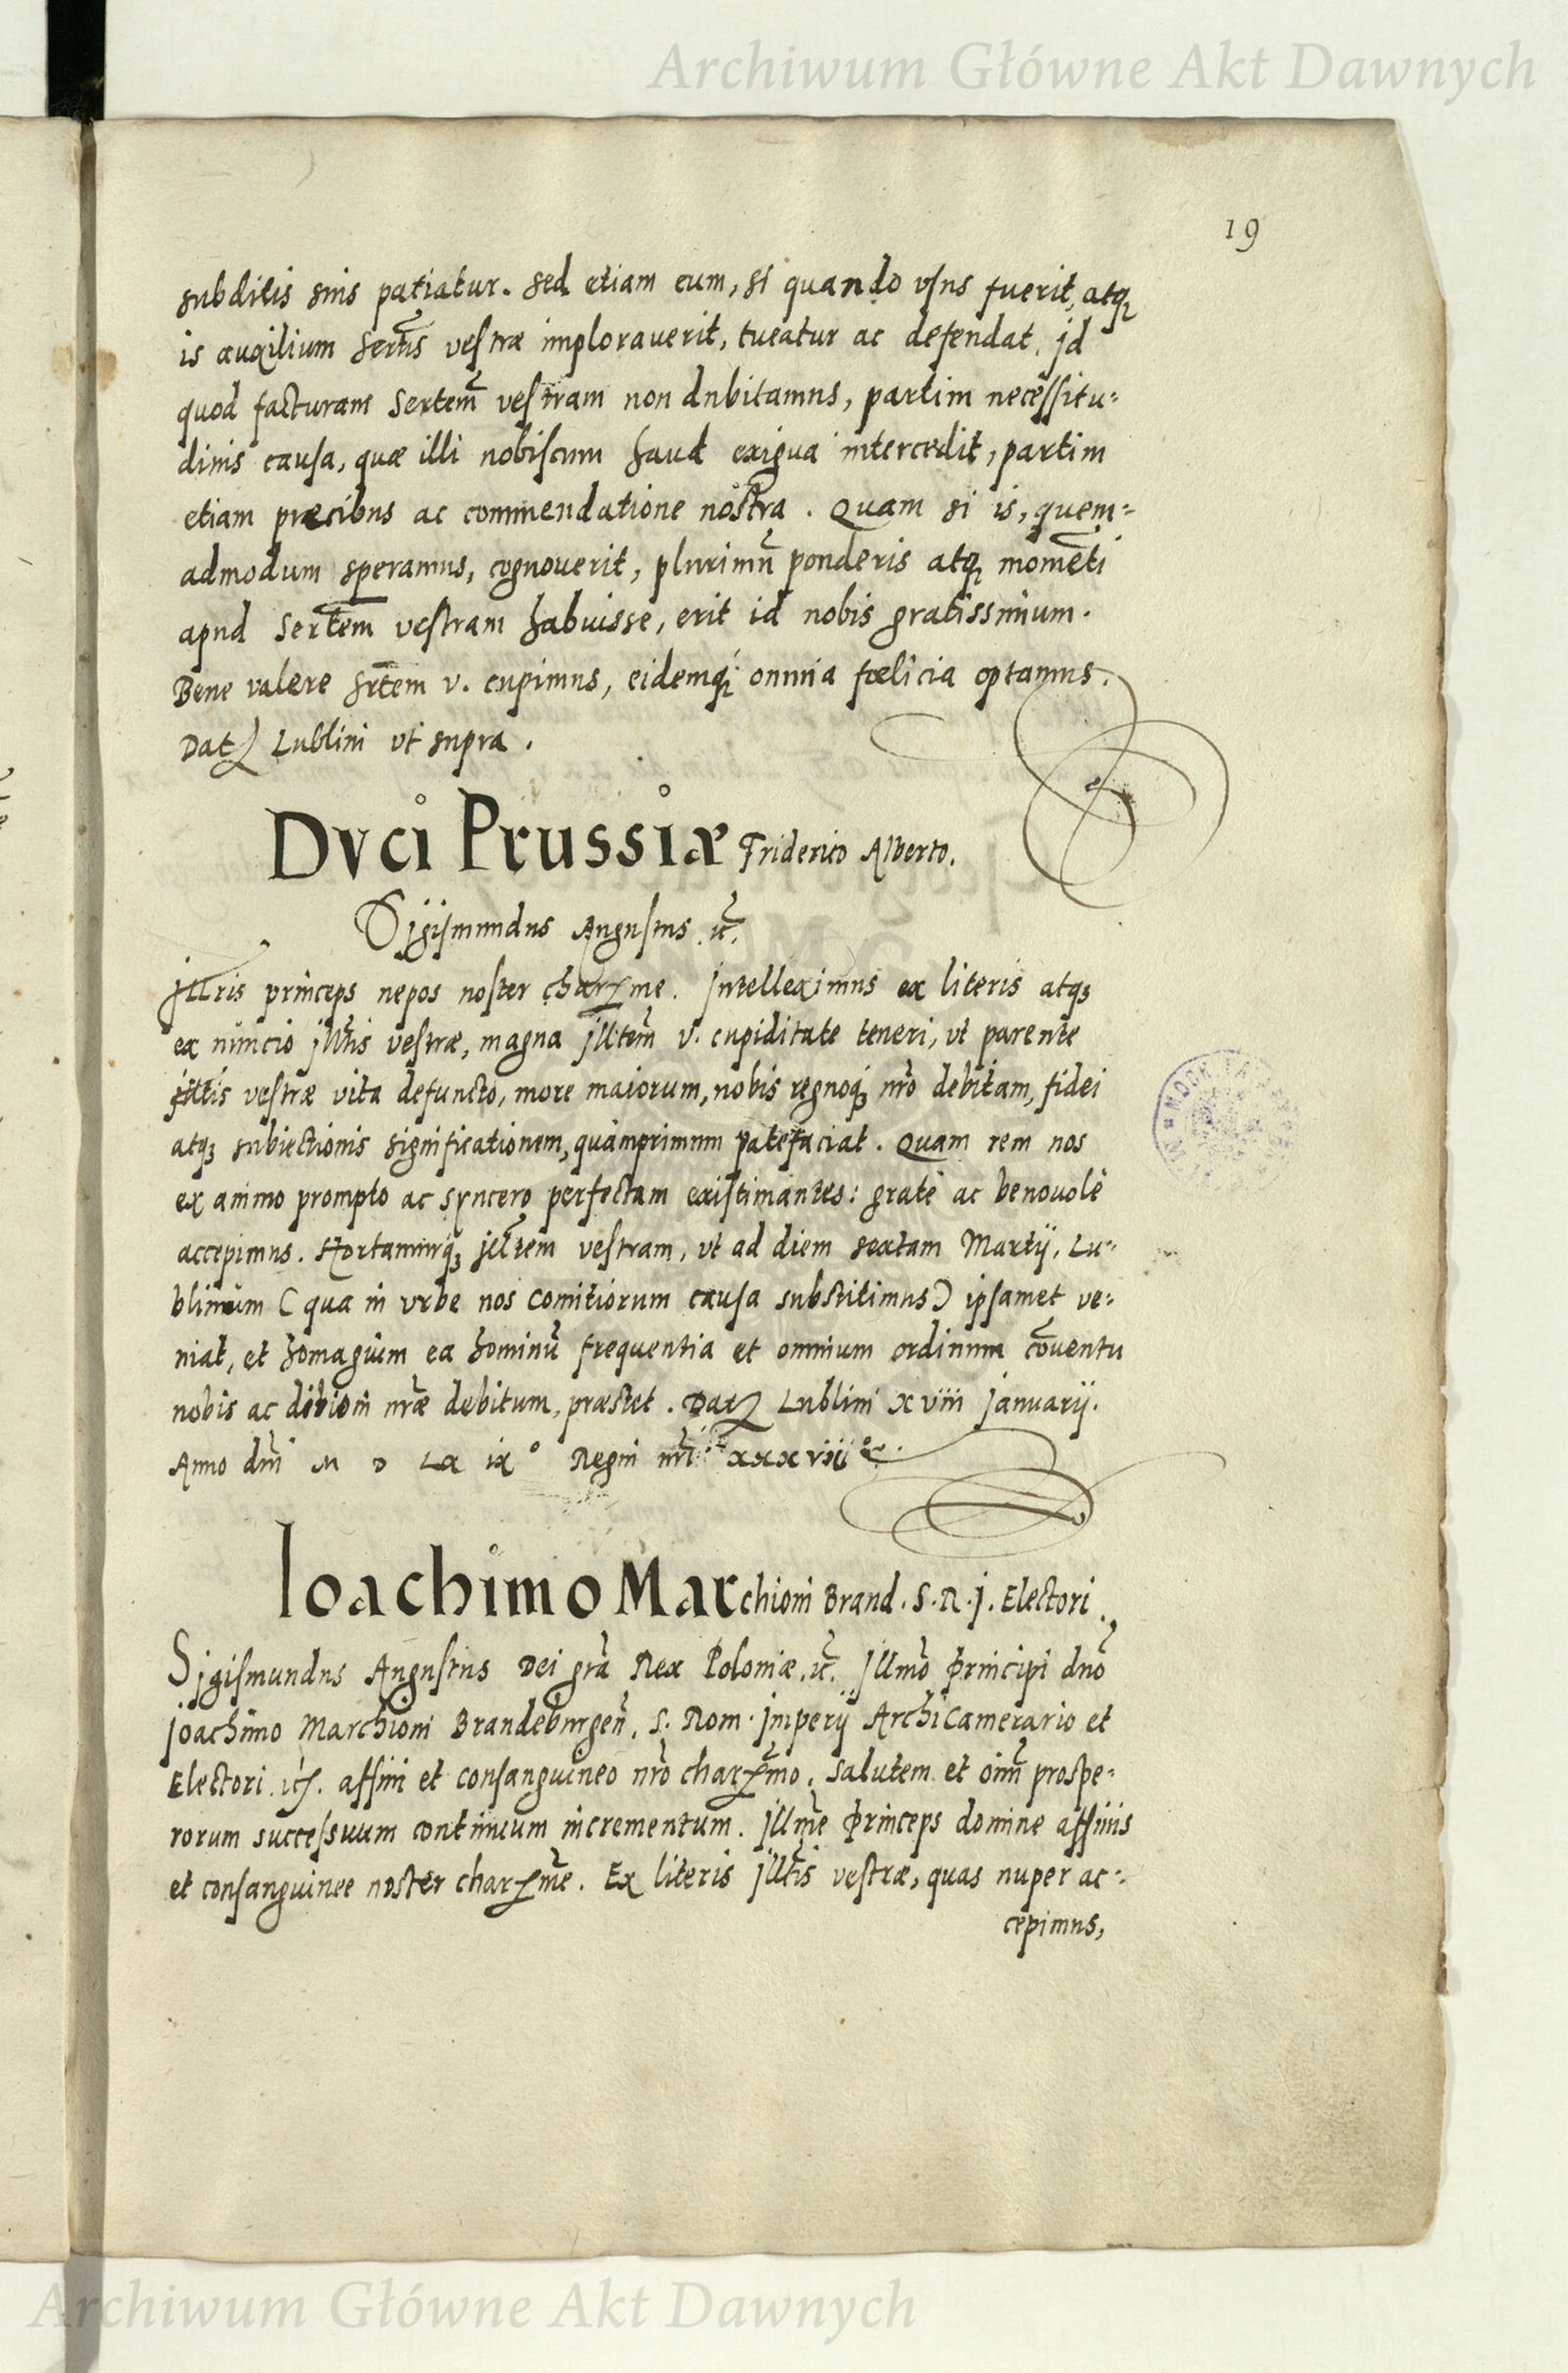 Archiwum Główne Akt Dawnych
19
subditis suis patiatur. Sed etiam eum, si quando usus fuerit, atq;
is auxilium Sertis vestræ imploraverit, tueatur ac defendat. Id
quod facturam Sertem vestram non dubitamus, partim necessitu-
dinis causa, quæ illi nobiscum haud exigua intercedit, partim
etiam præcibus ac commendatione nostra. Quam si is, quem-
admodum speramus, cognoverit, plurimũ ponderis atq; momẽti
apud Sertem vestram habuisse, erit id nobis gratissimum.
Bene valere Srtem v. cupimus, eidemq; omnia fœlicia optamus.
Dat Lublini ut supra.
Dvci Prussiæ Friderico Alberto.
Sigismundus Augustus etc.
Illris princeps nepos noster charme. Intelleximus ex literis atq;
ex nuncio Illtis vestræ, magna Illtem v. cupiditate teneri, ut parente
Illtis vestræ vita defuncto, more maiorum, nobis regnoq; nro debitam, fidei
atq; subiectionis significationem, quàmprimum patefaciat. Quam rem nos
ex animo prompto ac syncero perfectam existimantes: gratè ac benovolè
accepimus. Hortamurq; Illtem vestram, ut ad diem sextam Martij, Lu-
blinum (qua in urbe nos comitiorum causa substitimus) ipsamet ve-
niat, et homagium ea hominũ frequentia et omnium ordinum cõventu
nobis ac ditioni nræ debitum, præstet. Dat Lublini xviii Januarij.
Anno dni M D Lx ix° Regni nri xxxviii
Ioachimo Marchioni Brand. S. R. J. Electori.
Sigismundus Augustus Dei gra Rex Poloniæ etc. Illmo Principi dno
Joachimo Marchioni Brandeburgen. S. Rom. Imperij Archicamerario et
Electori etc. affini et consanguineo nro charmo, salutem et oim prospe-
rorum successuum continuum incrementum. Illme Princeps domine affinis
et consanguinee noster charme. Ex literis Illtis vestræ, quas nuper ac-
cepimus,
Archiwum Główne Akt Dawnych